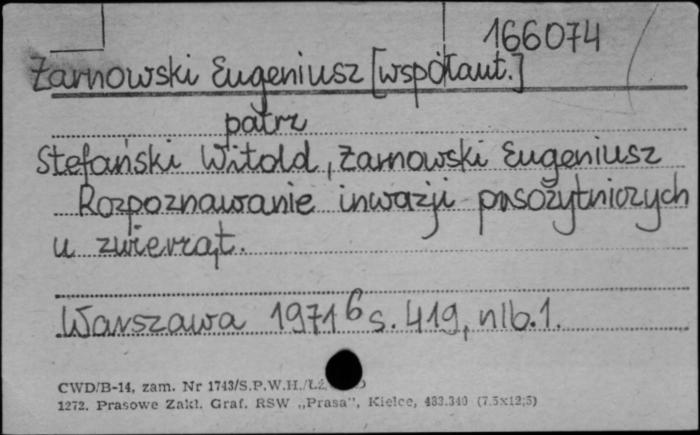 166074
Żarnowski Eugeniusz [współaut.]
patrz
Stefański Witold, Żarnowski Eugeniusz
Rozpoznawanie inwazji pasożytniczych
u zwierząt.
Warszawa 1971 6 s. 419, nlb.1.
CWD/B-14, zam. Nr 1743/S.P.W.H./Łż
1272. Prasowe Zakł. Graf. RSW „Prasa”, Kielce, 483.340 (7.5x12;5)